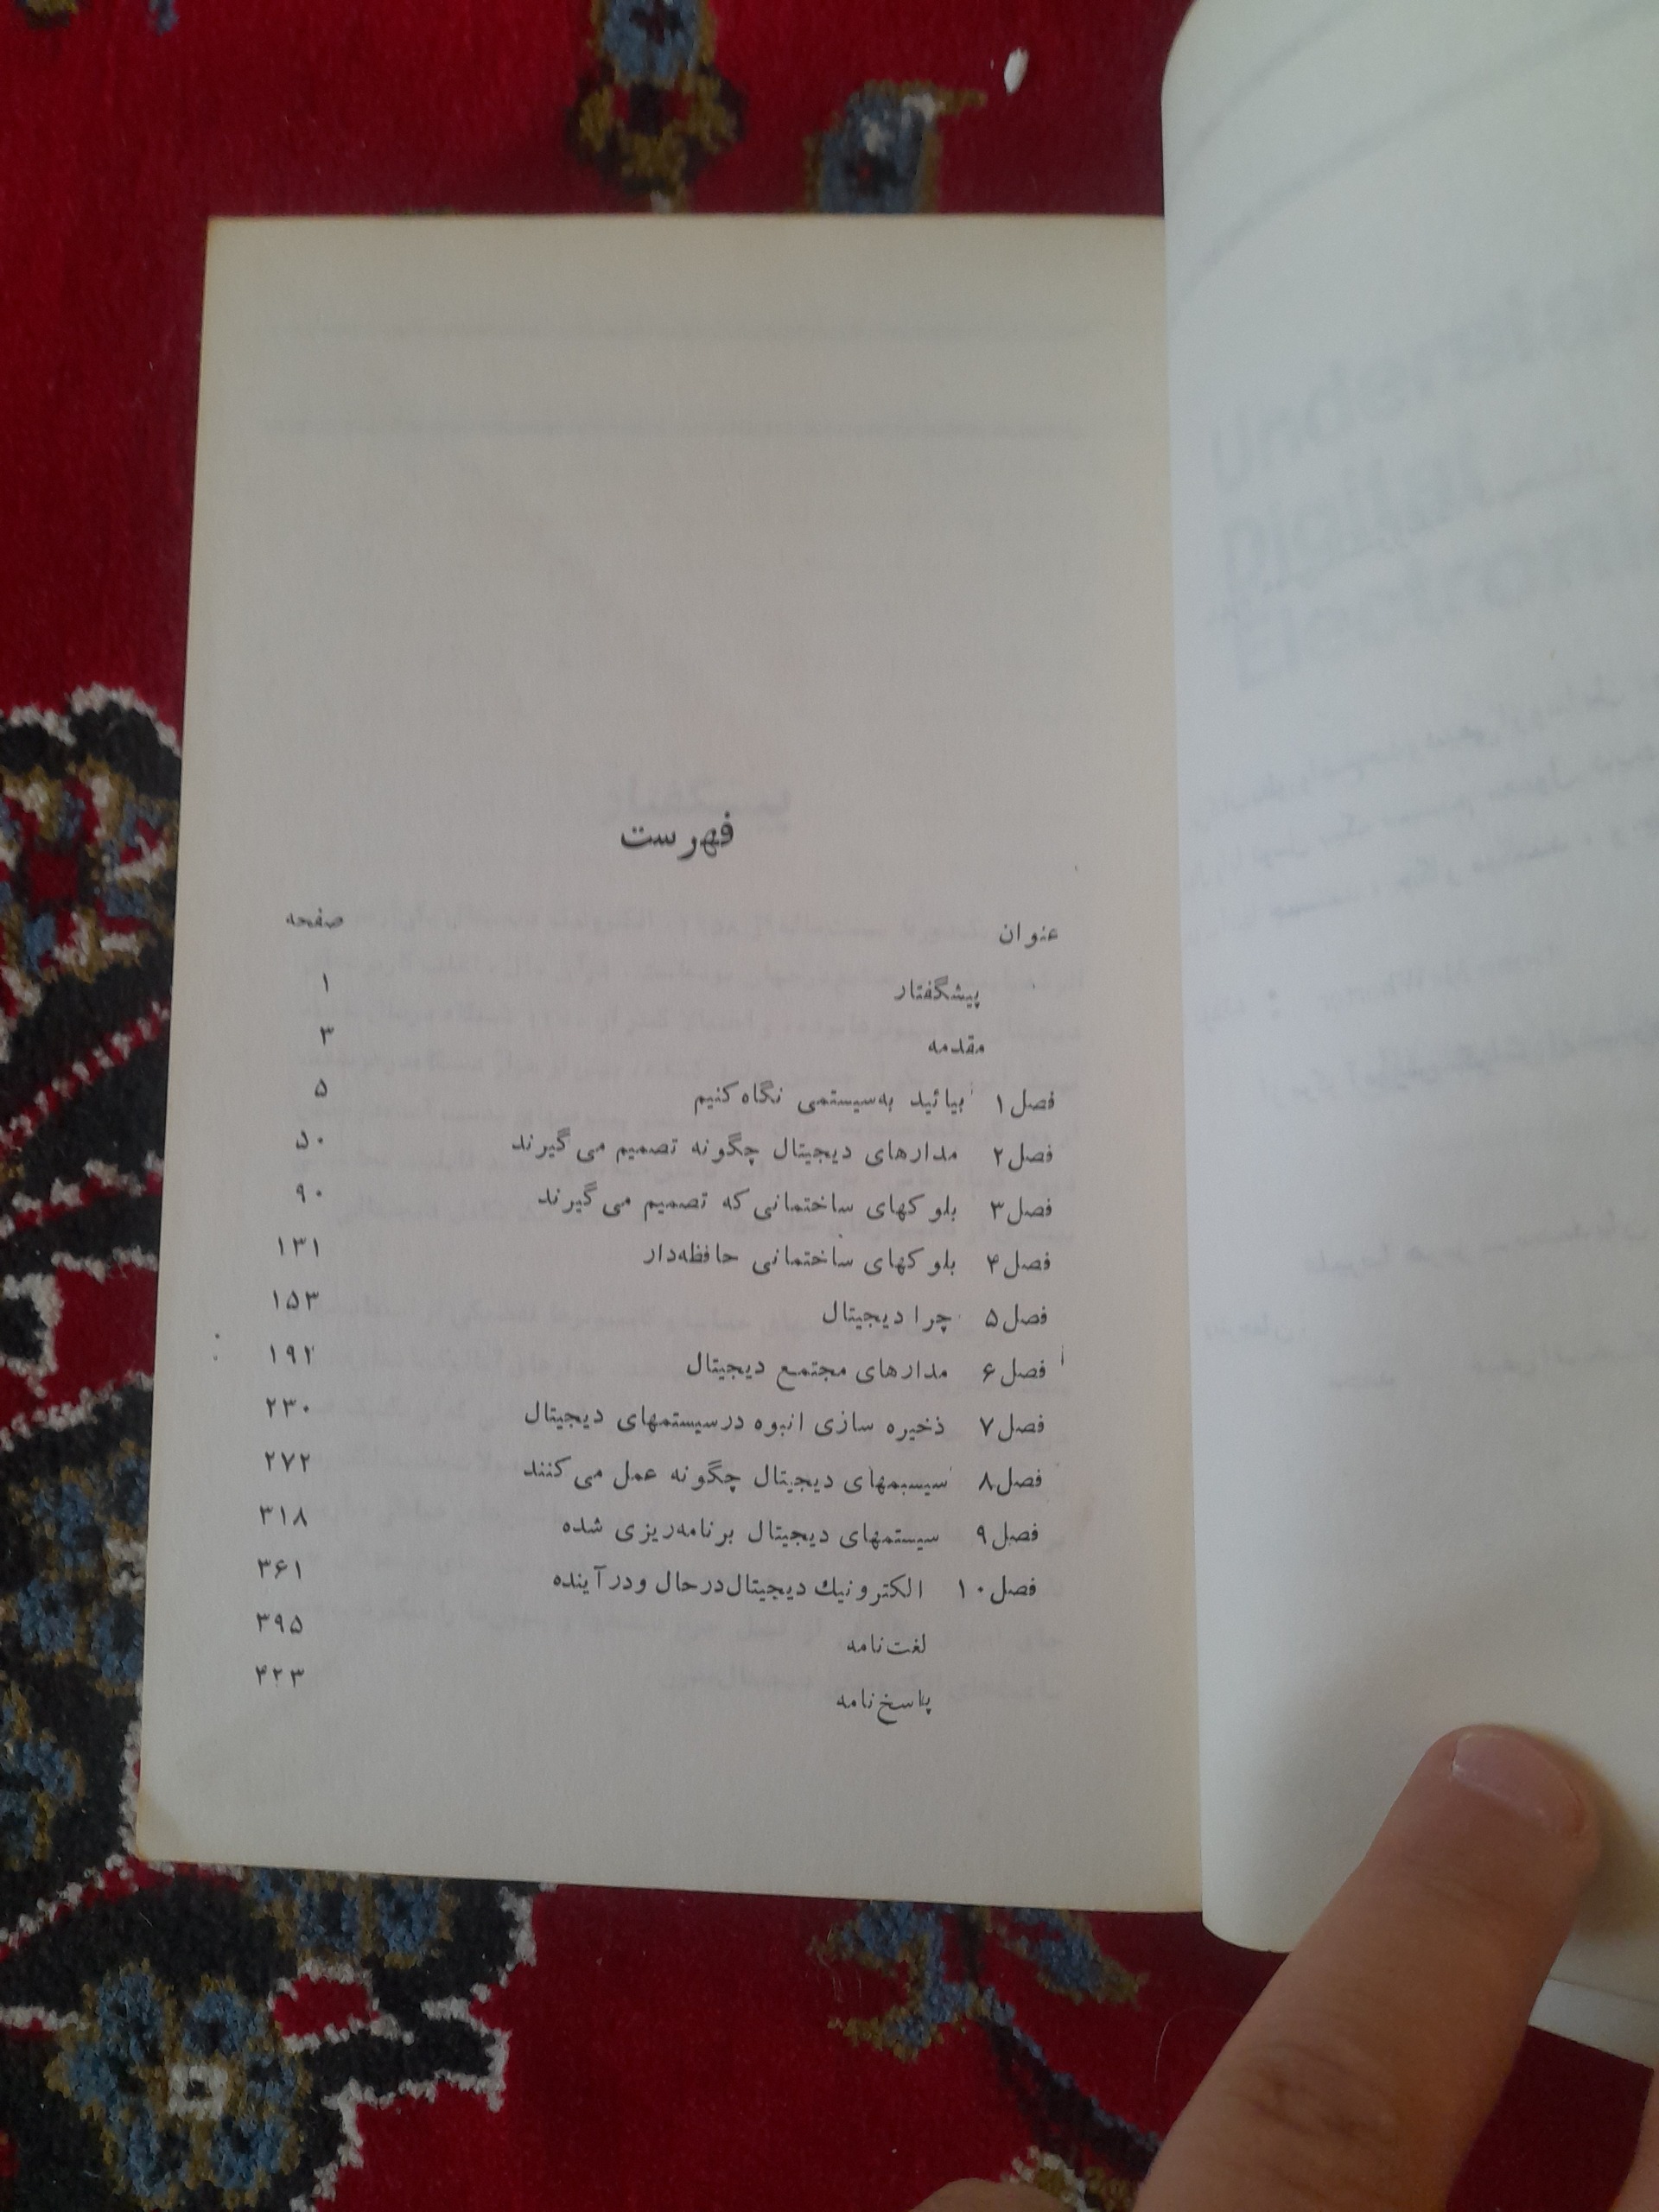 فهرست
عنوان صفحه
پیشگفتار ۱
مقدمه ۳
فصل ۱ بیائید به‌سیستمی نگاه کنیم ۵
فصل ۲ مدارهای دیجیتال چگونه تصمیم می‌گیرند ۵۰
فصل ۳ بلوکهای ساختمانی که تصمیم می‌گیرند ۹۰
فصل ۴ بلوکهای ساختمانی حافظه‌دار ۱۳۱
فصل ۵ چرا دیجیتال ۱۵۳
فصل ۶ مدارهای مجتمع دیجیتال ۱۹۲
فصل ۷ ذخیره سازی انبوه درسیستمهای دیجیتال ۲۳۰
فصل ۸ سیسبمهای دیجیتال چگونه عمل می‌کنند ۲۷۲
فصل ۹ سیستمهای دیجیتال برنامه‌ریزی شده ۳۱۸
فصل ۱۰ الکترونیك دیجیتال‌درحال ودرآینده ۳۶۱
لغت‌نامه ۳۹۵
پاسخ‌نامه ۴۲۳